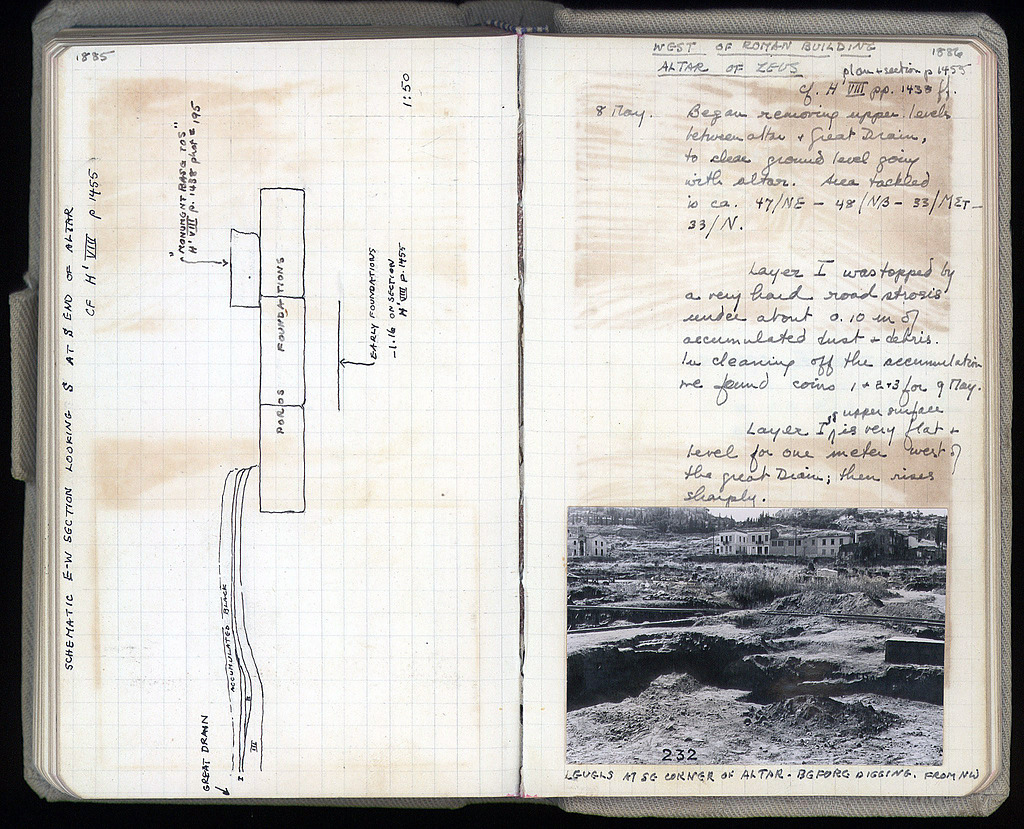 1885
SCHEMATIC E-W SECTION LOOKING S AT S END OF ALTAR
CF H' VIII p 1455
"MONUMENT BASE TOS"
H' VIII p. 1438 phot # 195
1:50
POROS FOUNDATIONS
EARLY FOUNDATIONS
-1.16 ON SECTION
H' VIII p. 1455
ACCUMULATED BLACK
GREAT DRAIN
I
II
III
1886
WEST OF ROMAN BUILDING
ALTAR OF ZEUS
plan + section p 1455
cf. H' VIII pp. 1438 ff.
8 May. Began removing upper levels
between altar + Great Drain,
to clear ground level going
with altar. Area tackled
is ca. 47/NE – 48/NB – 33/MΣΤ –
33/N.
Layer I was topped by
a very hard road strosis
under about 0.10 m of
accumulated dust + debris.
In cleaning off the accumulation
we found coins 1 + 2 + 3 for 9 May.
Layer I's upper surface is very flat +
level for one meter west of
the great Drain; then rises
sharply.
232
LEVELS AT SE CORNER OF ALTAR. BEFORE DIGGING. FROM NW